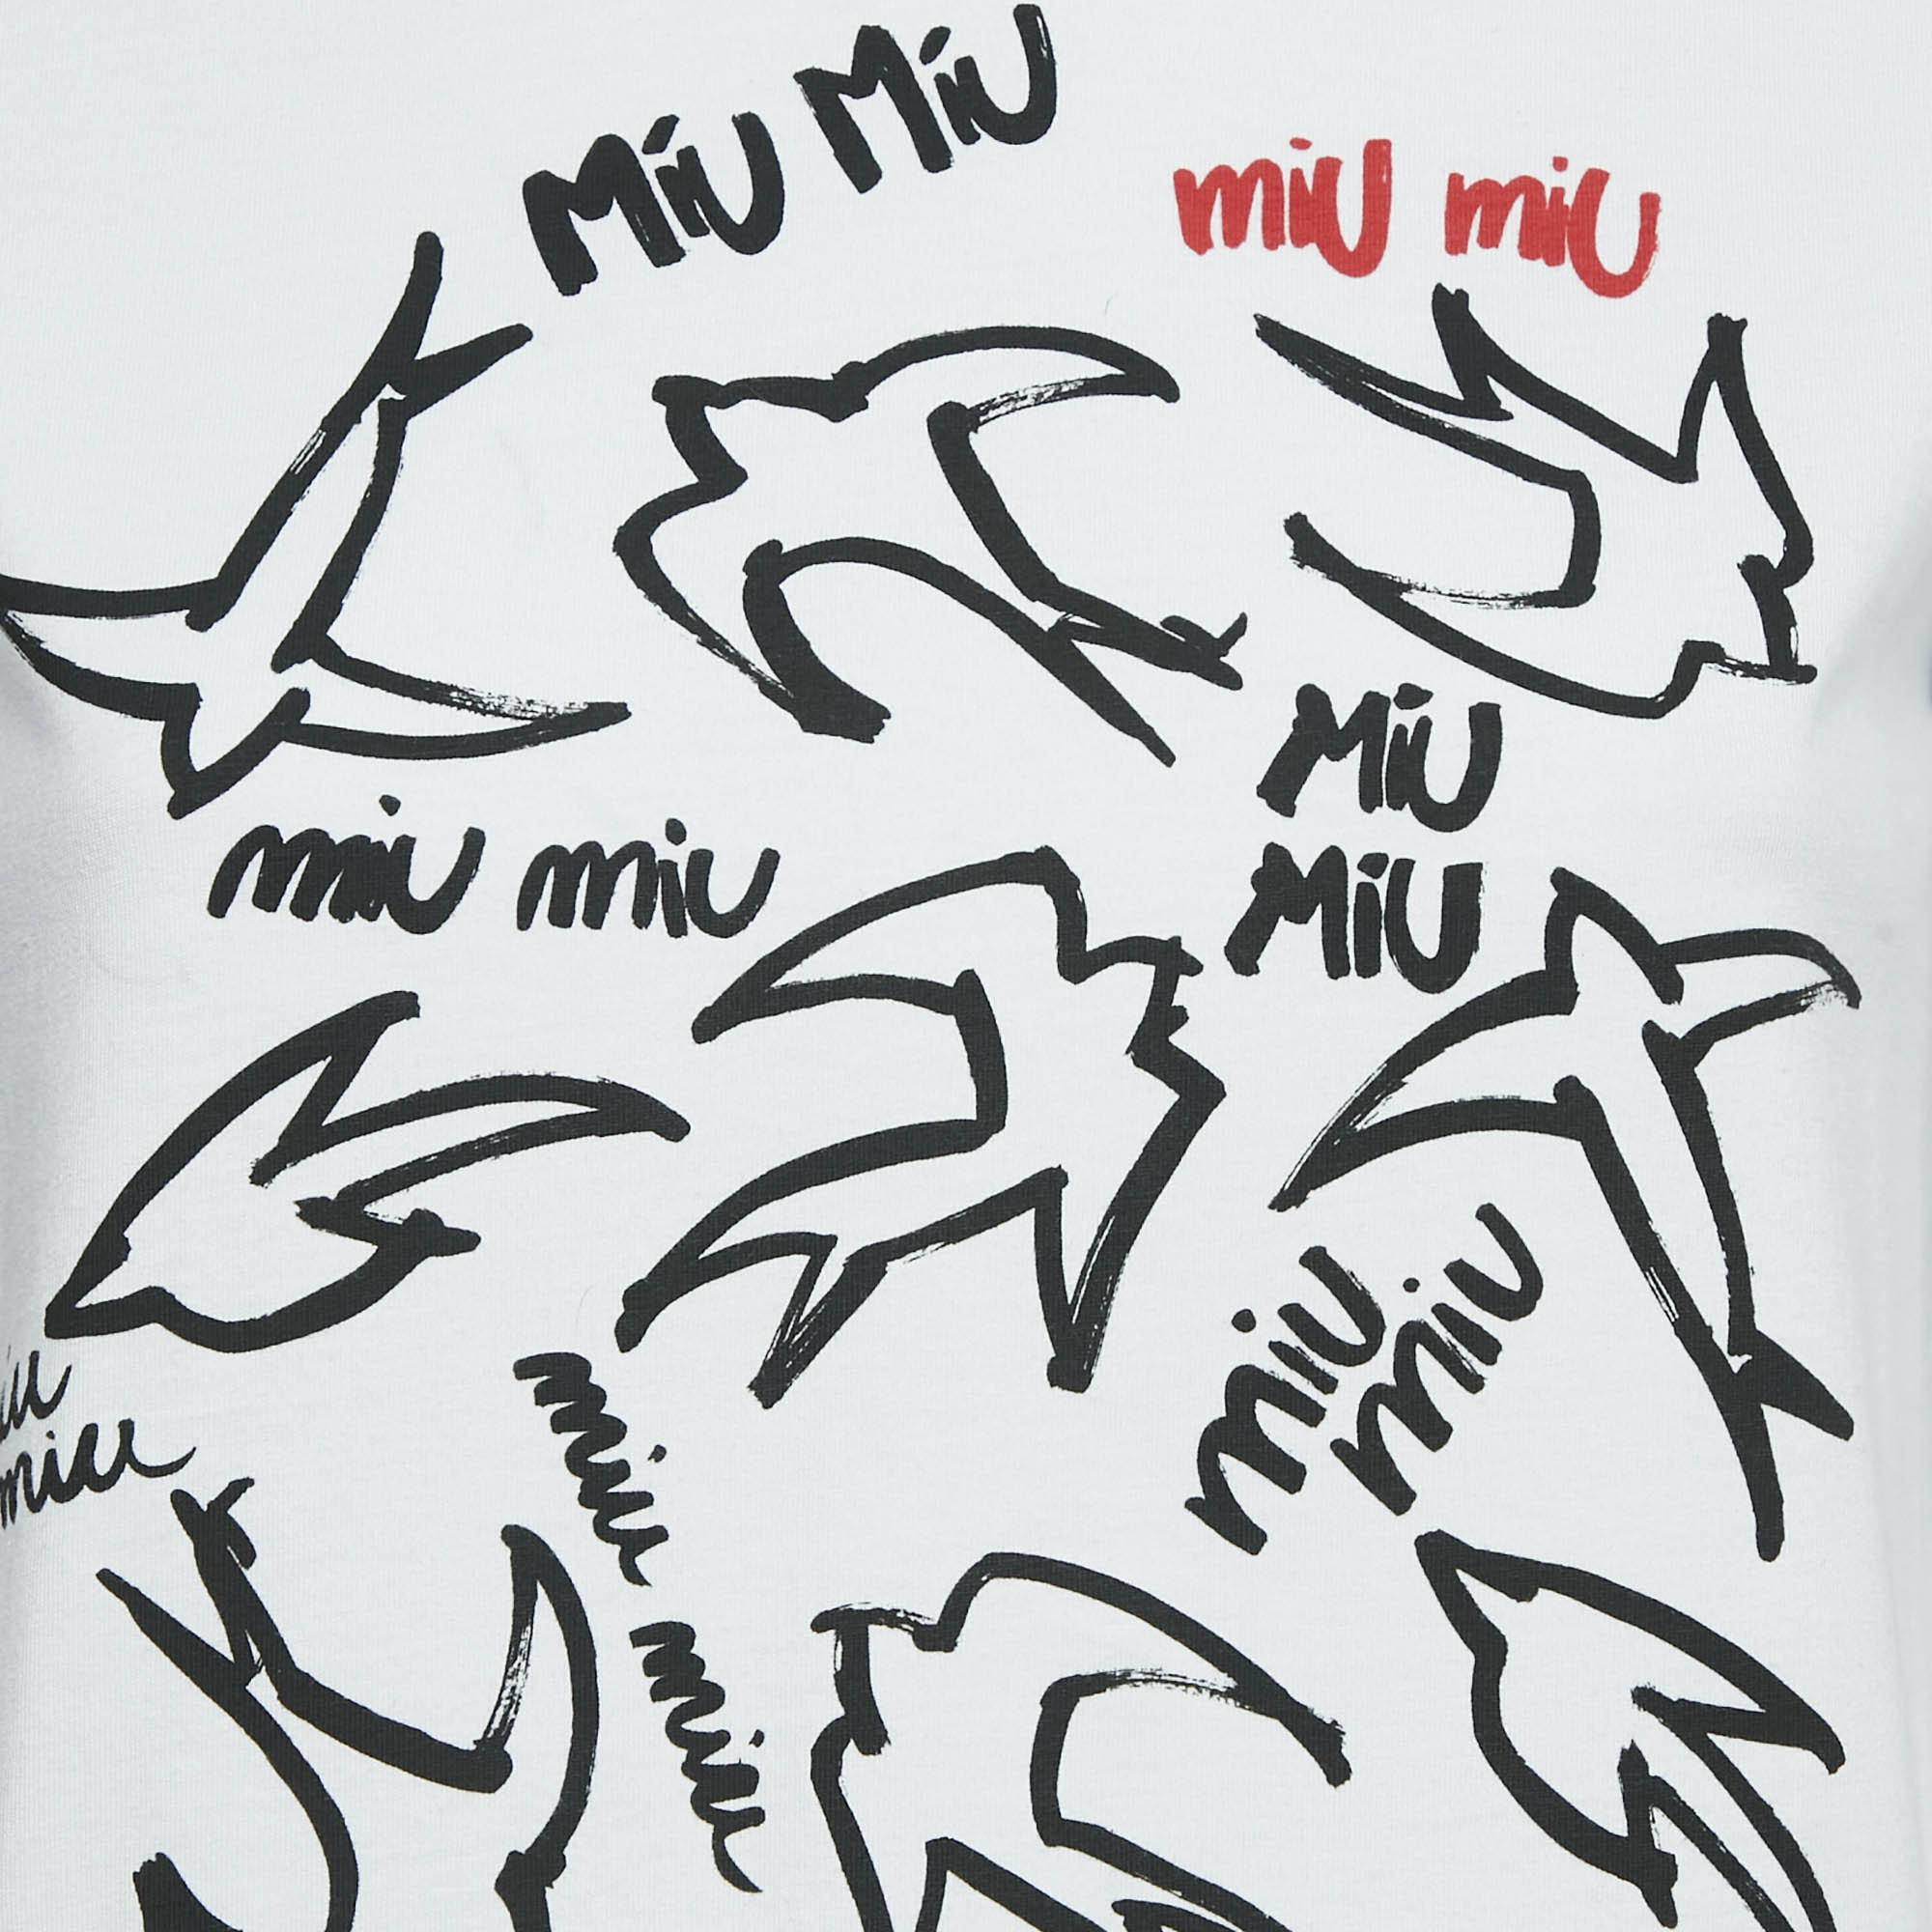 Miu Miu
miu miu
Miu
Miu
miu miu
miu
miu
miu
miu miu